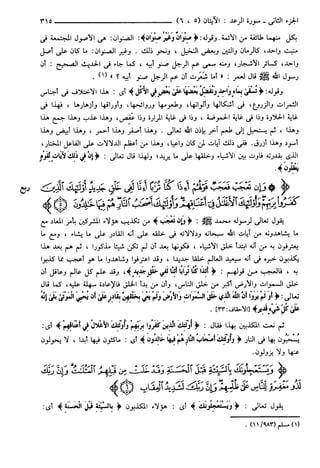 الجزء الثانى - سورة الرعد : الآيتان (٥ ، ٦) ٣١٥
بكل منهما طائفة من الأئمة. وقوله: ﴿ صِنْوَانٌ وَغَيْرُ صِنْوَانٍ ﴾: الصنوان: هى الأصول المجتمعة فى
منبت واحد، كالرمان والتين وبعض النخيل ، ونحو ذلك . وغير الصنوان: ما كان على أصل
واحد، كسائر الأشجار، ومنه سمى عم الرجل صنو أبيه ، كما جاء فى الحديث الصحيح : أن
رسول الله ﷺ قال لعمر : « أما شَعَرت أن عم الرجل صنو أبيه ؟ » (١) .
وقوله: ﴿ تُسْقَىٰ بِمَاءٍ وَاحِدٍ وَنُفَضِّلُ بَعْضَهَا عَلَىٰ بَعْضٍ فِي الْأُكُلِ ﴾ أى : هذا الاختلاف فى أجناس
الثمرات والزروع، فى أشكالها وألوانها، وطعومها وروائحها، وأوراقها وأزهارها ، فهذا فى
غاية الحلاوة وذا فى غاية الحموضة ، وذا فى غاية المرارة وذا عَفِص، وهذا عذب وهذا جمع هذا
وهذا ، ثم يستحيل إلى طعم آخر بإذن الله تعالى . وهذا أصفر وهذا أحمر ، وهذا أبيض وهذا
أسود وهذا أزرق. ففى ذلك آيات لمن كان واعيا، وهذا من أعظم الدلالات على الفاعل المختار،
الذى بقدرته فاوت بين الأشياء وخلقها على ما يريد؛ ولهذا قال تعالى : ﴿ إِنَّ فِي ذَٰلِكَ لَآيَاتٍ لِّقَوْمٍ
يَعْقِلُونَ ﴾.
ربع
﴿ وَإِن تَعْجَبْ فَعَجَبٌ قَوْلُهُمْ أَءِذَا كُنَّا تُرَٰبًا أَءِنَّا لَفِى خَلْقٍ جَدِيدٍ أُو۟لَٰٓئِكَ
ٱلَّذِينَ كَفَرُوا۟ بِرَبِّهِمْ وَأُو۟لَٰٓئِكَ ٱلْأَغْلَٰلُ فِىٓ أَعْنَاقِهِمْ وَأُو۟لَٰٓئِكَ أَصْحَٰبُ ٱلنَّارِ هُمْ فِيهَا خَٰلِدُونَ ﴾
يقول تعالى لرسوله محمد ﷺ : ﴿ وَإِن تَعْجَبْ ﴾ من تكذيب هؤلاء المشركين بأمر المعاد مع
ما يشاهدونه من آيات الله سبحانه ودلالاته فى خلقه على أنه القادر على ما يشاء ، ومع ما
يعترفون به من أنه ابتدأ خلق الأشياء ، فكونها بعد أن لم تكن شيئا مذكورا ، ثم هم بعد هذا
يكذبون خبره فى أنه سيعيد العالمين خلقا جديدا ، وقد اعترفوا وشاهدوا ما هو أعجب مما كذبوا
به ، فالعجب من قولهم : ﴿ أَئِذَا كُنَّا تُرَابًا أَئِنَّا لَفِي خَلْقٍ جَدِيدٍ ﴾، وقد علم كل عالم وعاقل أن
خلق السموات والأرض أكبر من خلق الناس، وأن من بدأ الخلق فالإعادة سهلة عليه، كما قال
تعالى: ﴿ أَوَلَمْ يَرَوْا أَنَّ اللَّهَ الَّذِي خَلَقَ السَّمَوَاتِ وَالْأَرْضَ وَلَمْ يَعْيَ بِخَلْقِهِنَّ بِقَادِرٍ عَلَىٰ أَن يُحْيِيَ الْمَوْتَىٰ بَلَىٰ إِنَّهُ
عَلَىٰ كُلِّ شَيْءٍ قَدِيرٌ ﴾ [الأحقاف: ٣٣] .
ثم نعت المكذبين بهذا فقال : ﴿ أُولَٰئِكَ الَّذِينَ كَفَرُوا بِرَبِّهِمْ وَأُولَٰئِكَ الْأَغْلَالُ فِي أَعْنَاقِهِمْ ﴾ أى:
يُسْحَبُون بها فى النار ﴿ وَأُولَٰئِكَ أَصْحَابُ النَّارِ هُمْ فِيهَا خَالِدُونَ ﴾ أى : ماكثون فيها أبدا ، لا يحولون
عنها ولا يزولون.
﴿ وَيَسْتَعْجِلُونَكَ بِٱلسَّيِّئَةِ قَبْلَ ٱلْحَسَنَةِ وَقَدْ خَلَتْ مِن قَبْلِهِمُ ٱلْمَثُلَٰتُ وَإِنَّ رَبَّكَ
لَذُو مَغْفِرَةٍ لِّلنَّاسِ عَلَىٰ ظُلْمِهِمْ وَإِنَّ رَبَّكَ لَشَدِيدُ ٱلْعِقَابِ ﴾
يقول تعالى : ﴿ وَيَسْتَعْجِلُونَكَ ﴾ أى : هؤلاء المكذبون ﴿ بِالسَّيِّئَةِ قَبْلَ الْحَسَنَةِ ﴾ أى:
(١) مسلم (٩٨٣/ ١١) .